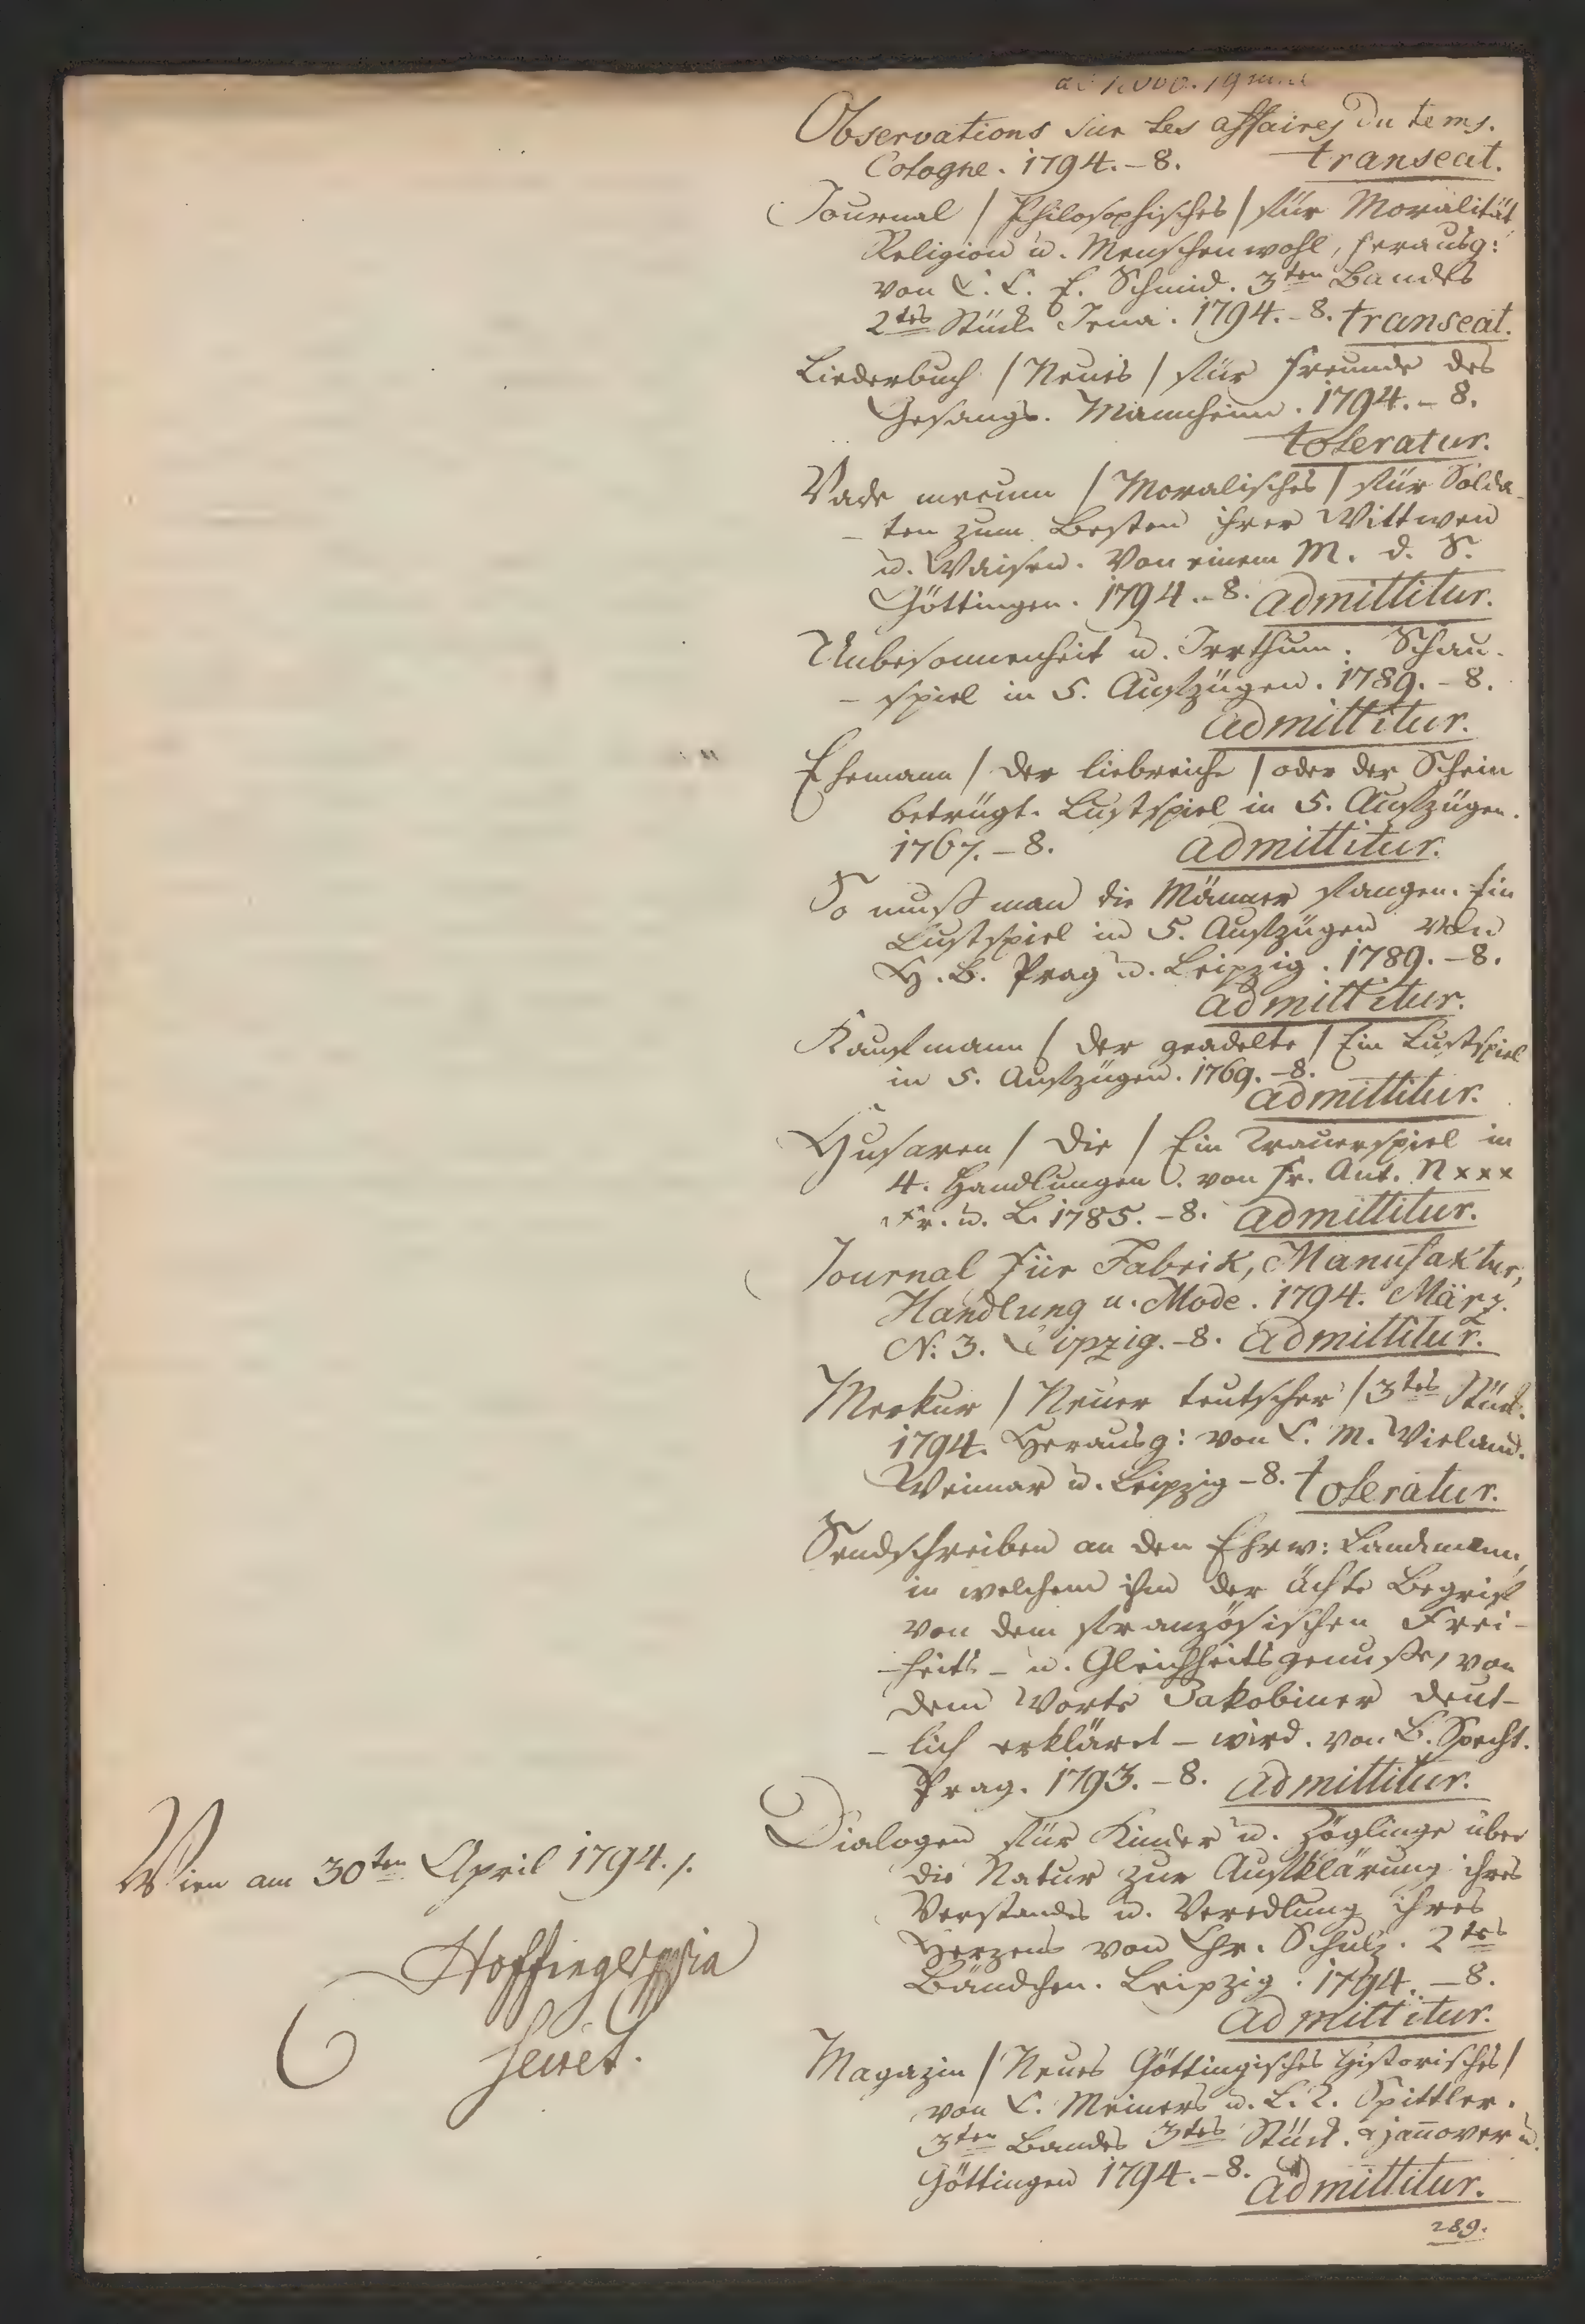 Observations sur les affaires du tems.
Cologne. 1794.-8. transeat.
Journal / Philosophisches / für Moralität
Religion u. Menschenwohl, herausg:
von C. C. E. Schmid. 3ten Bandes
2tes Stück Jena. 1794.-8. transeat.
Liederbuch / Neues / für Freunde des
Gesangs. Mannheim. 1794.-8.
toleratur.
Vade mecum / Moralisches / für Solda-
-ten zum Besten ihrer Wittwen
u. Waisen. Von einem M. d. S.
Göttingen. 1794.-8. admittitur.
Unbesonnenheit u. Irrthum. Schau-
-spiel in 5. Aufzügen. 1789.-8.
admittitur.
Ehemann / der liebreiche / oder der Schein
betrügt. Lustspiel in 5. Aufzügen.
1767.-8. admittitur.
So muß man die Männer fangen. Ein
Lustspiel in 5. Aufzügen von
H. B. Prag u. Leipzig. 1789.-8.
admittitur.
Kaufmann / der geadelte / Ein Lustspiel
in 5. Aufzügen. 1769.-8.
admittitur.
Husaren / die / Ein Trauerspiel in
4. Handlungen. von Fr. Ant. N x x x
Fr. u. L. 1785.-8. admittitur.
Journal für Fabrik, Manufaktur,
Handlung u. Mode. 1794. März.
N: 3. Leipzig.-8. admittitur.
Merkur / Neuer teutscher / 3tes Stück.
1794. Herausg: von C. M. Wieland.
Weimar u. Leipzig -8. toleratur.
Sendschreiben an den Ehrw: Landmann,
in welchem ihm der ächte Begrif
von dem französischen Frei-
-heits- u. Gleichheitsgenuße, von
dem Worte Jakobiner deut-
-lich erkläret - wird. von B. Specht.
Prag. 1793.-8. admittitur.
Dialogen für Kinder u. Zöglinge über
die Natur zur Aufklärung ihres
Verstandes u. Veredlung ihres
Herzens von Chr. Schulz. 2tes
Bändchen. Leipzig. 1794.-8.
admittitur.
Magazin / Neues Göttingisches historisches /
von C. Meiners u. L. T. Spittler.
3ten Bandes 3tes Stück. Hannover u.
Göttingen 1794.-8. admittitur.
289.
Wien am 30ten April 1794./.
Hoffinger